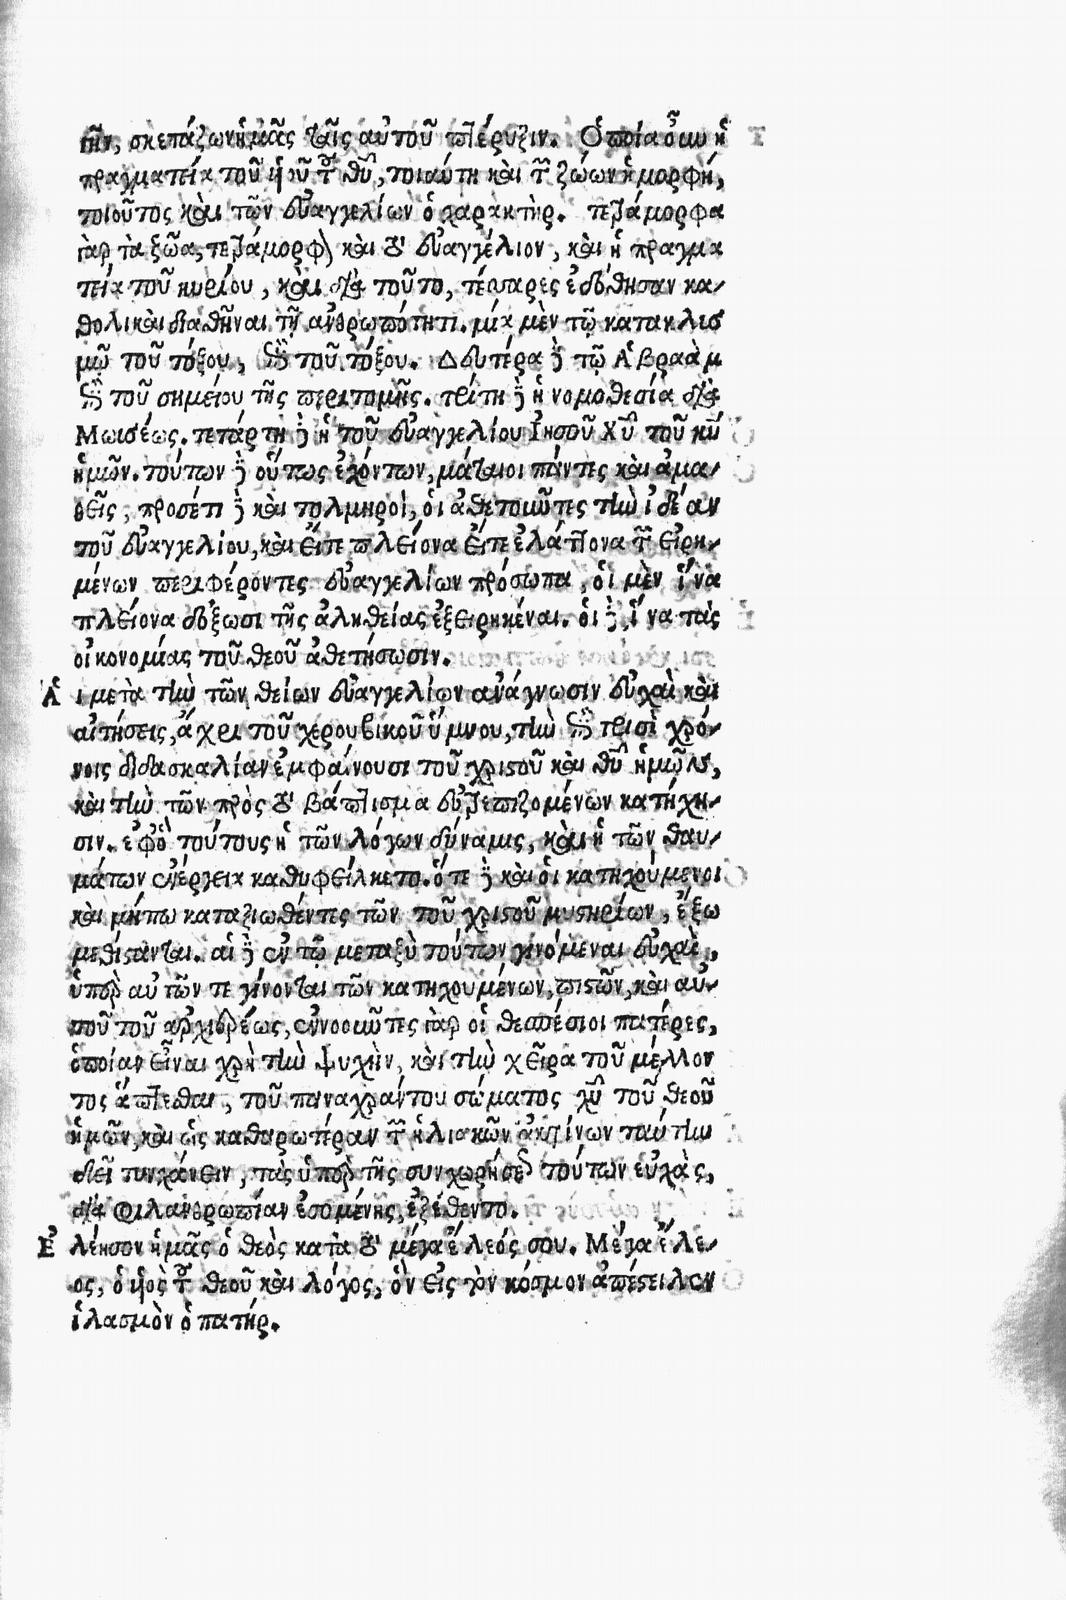 τὴν, σκεπάζων ἡμᾶς ταῖς αὐτοῦ πτέρυξιν. Ὁποία οὖν ἡ
πραγματεία τοῦ υἱοῦ τοῦ θῦ, τοιαύτη καὶ τῶν ζώων ἡ μορφή,
τοιοῦτος καὶ τῶν εὐαγγελίων ὁ χαρακτήρ. τετράμορφα
γὰρ τὰ ζῶα, τετράμορφον καὶ τὸ εὐαγγέλιον, καὶ ἡ πραγμα
τεία τοῦ κυρίου, καὶ διὰ τοῦτο, τέσσαρες ἐδόθησαν κα-
θολικαὶ διαθῆναι τῇ ἀνθρωπότητι. μία μὲν τῷ κατακλισ
μῷ τοῦ τόξου, ἐπὶ τοῦ τόξου. Δευτέρα δὲ τῷ Ἀβραὰμ
ἐπὶ τοῦ σημείου τῆς περιτομῆς. τρίτη δὲ ἡ νομοθεσία διὰ
Μωισέως. τετάρτη δὲ ἡ τοῦ εὐαγγελίου Ἰησοῦ Χῦ τοῦ κῦ
ἡμῶν. τούτων δὲ οὕτως ἐχόντων, μάταιοι πάντες καὶ ἀμα-
θεῖς, προσέτι δὲ καὶ τολμηροὶ, οἱ ἀθετοῦντες τὴν ἰδέαν
τοῦ εὐαγγελίου, καὶ εἴτε πλείονα εἴτε ἐλάττονα τῶν εἰρη-
μένων περιφέροντες εὐαγγελίων πρόσωπα, οἱ μὲν ἵνα
πλείονα δόξωσι τῆς ἀληθείας ἐξειρηκέναι. οἱ δὲ, ἵνα τὰς
οἰκονομίας τοῦ θεοῦ ἀθετήσωσιν.
Ἁι μετὰ τὴν τῶν θείων εὐαγγελίων ἀνάγνωσιν εὐχαὶ καὶ
αἰτήσεις, ἄχρι τοῦ χερουβικοῦ ὕμνου, τὴν ἐπὶ τρισὶ χρό-
νοις διδασκαλίαν ἐμφαίνουσι τοῦ χριστοῦ καὶ θῦ ἡμῶν,
καὶ τὴν τῶν πρὸς τὸ βάπτισμα εὐτρεπιζομένων κατήχη-
σιν. ἐφ' οὓ τούτους ἡ τῶν λόγων δύναμις, καὶ ἡ τῶν θαυ-
μάτων ἐνέργεια καθυφείλκετο. ὅτε δὲ καὶ οἱ κατηχούμενοι
καὶ μήπω καταξιωθέντες τῶν τοῦ χριστοῦ μυστηρίων, ἔξω
μεθίστανται. αἱ δὲ ἐν τῷ μεταξὺ τούτων γινόμεναι εὐχαὶ,
ὑπὲρ αὐτῶν τε γίνονται τῶν κατηχουμένων, πιστῶν, καὶ αὐ-
τοῦ τοῦ ἀρχιερέως, ἐννοοῦντες γὰρ οἱ θεσπέσιοι πατέρες,
ὁποίαν εἶναι χρὴ τὴν ψυχὴν, καὶ τὴν χεῖρα τοῦ μέλλον
τος ἅπτεσθαι, τοῦ παναχράντου σώματος χῦ τοῦ θεοῦ
ἡμῶν, καὶ ὡς καθαρωτέραν τῶν ἡλιακῶν ἀκτίνων ταύτην
δεῖ τυγχάνειν, τὰς ὑπὲρ τῆς συγχωρήσεως τούτων εὐχὰς,
διὰ φιλανθρωπίαν ἐσομένης, ἐξέθεντο.
Ἐλέησον ἡμᾶς ὁ θεὸς κατὰ τὸ μέγα ἔλεός σου. Μέγα ἔλε-
ος, ὁ υἱὸς τοῦ θεοῦ καὶ λόγος, ὃν εἰς τὸν κόσμον ἀπέστειλεν
ἱλασμὸν ὁ πατήρ.